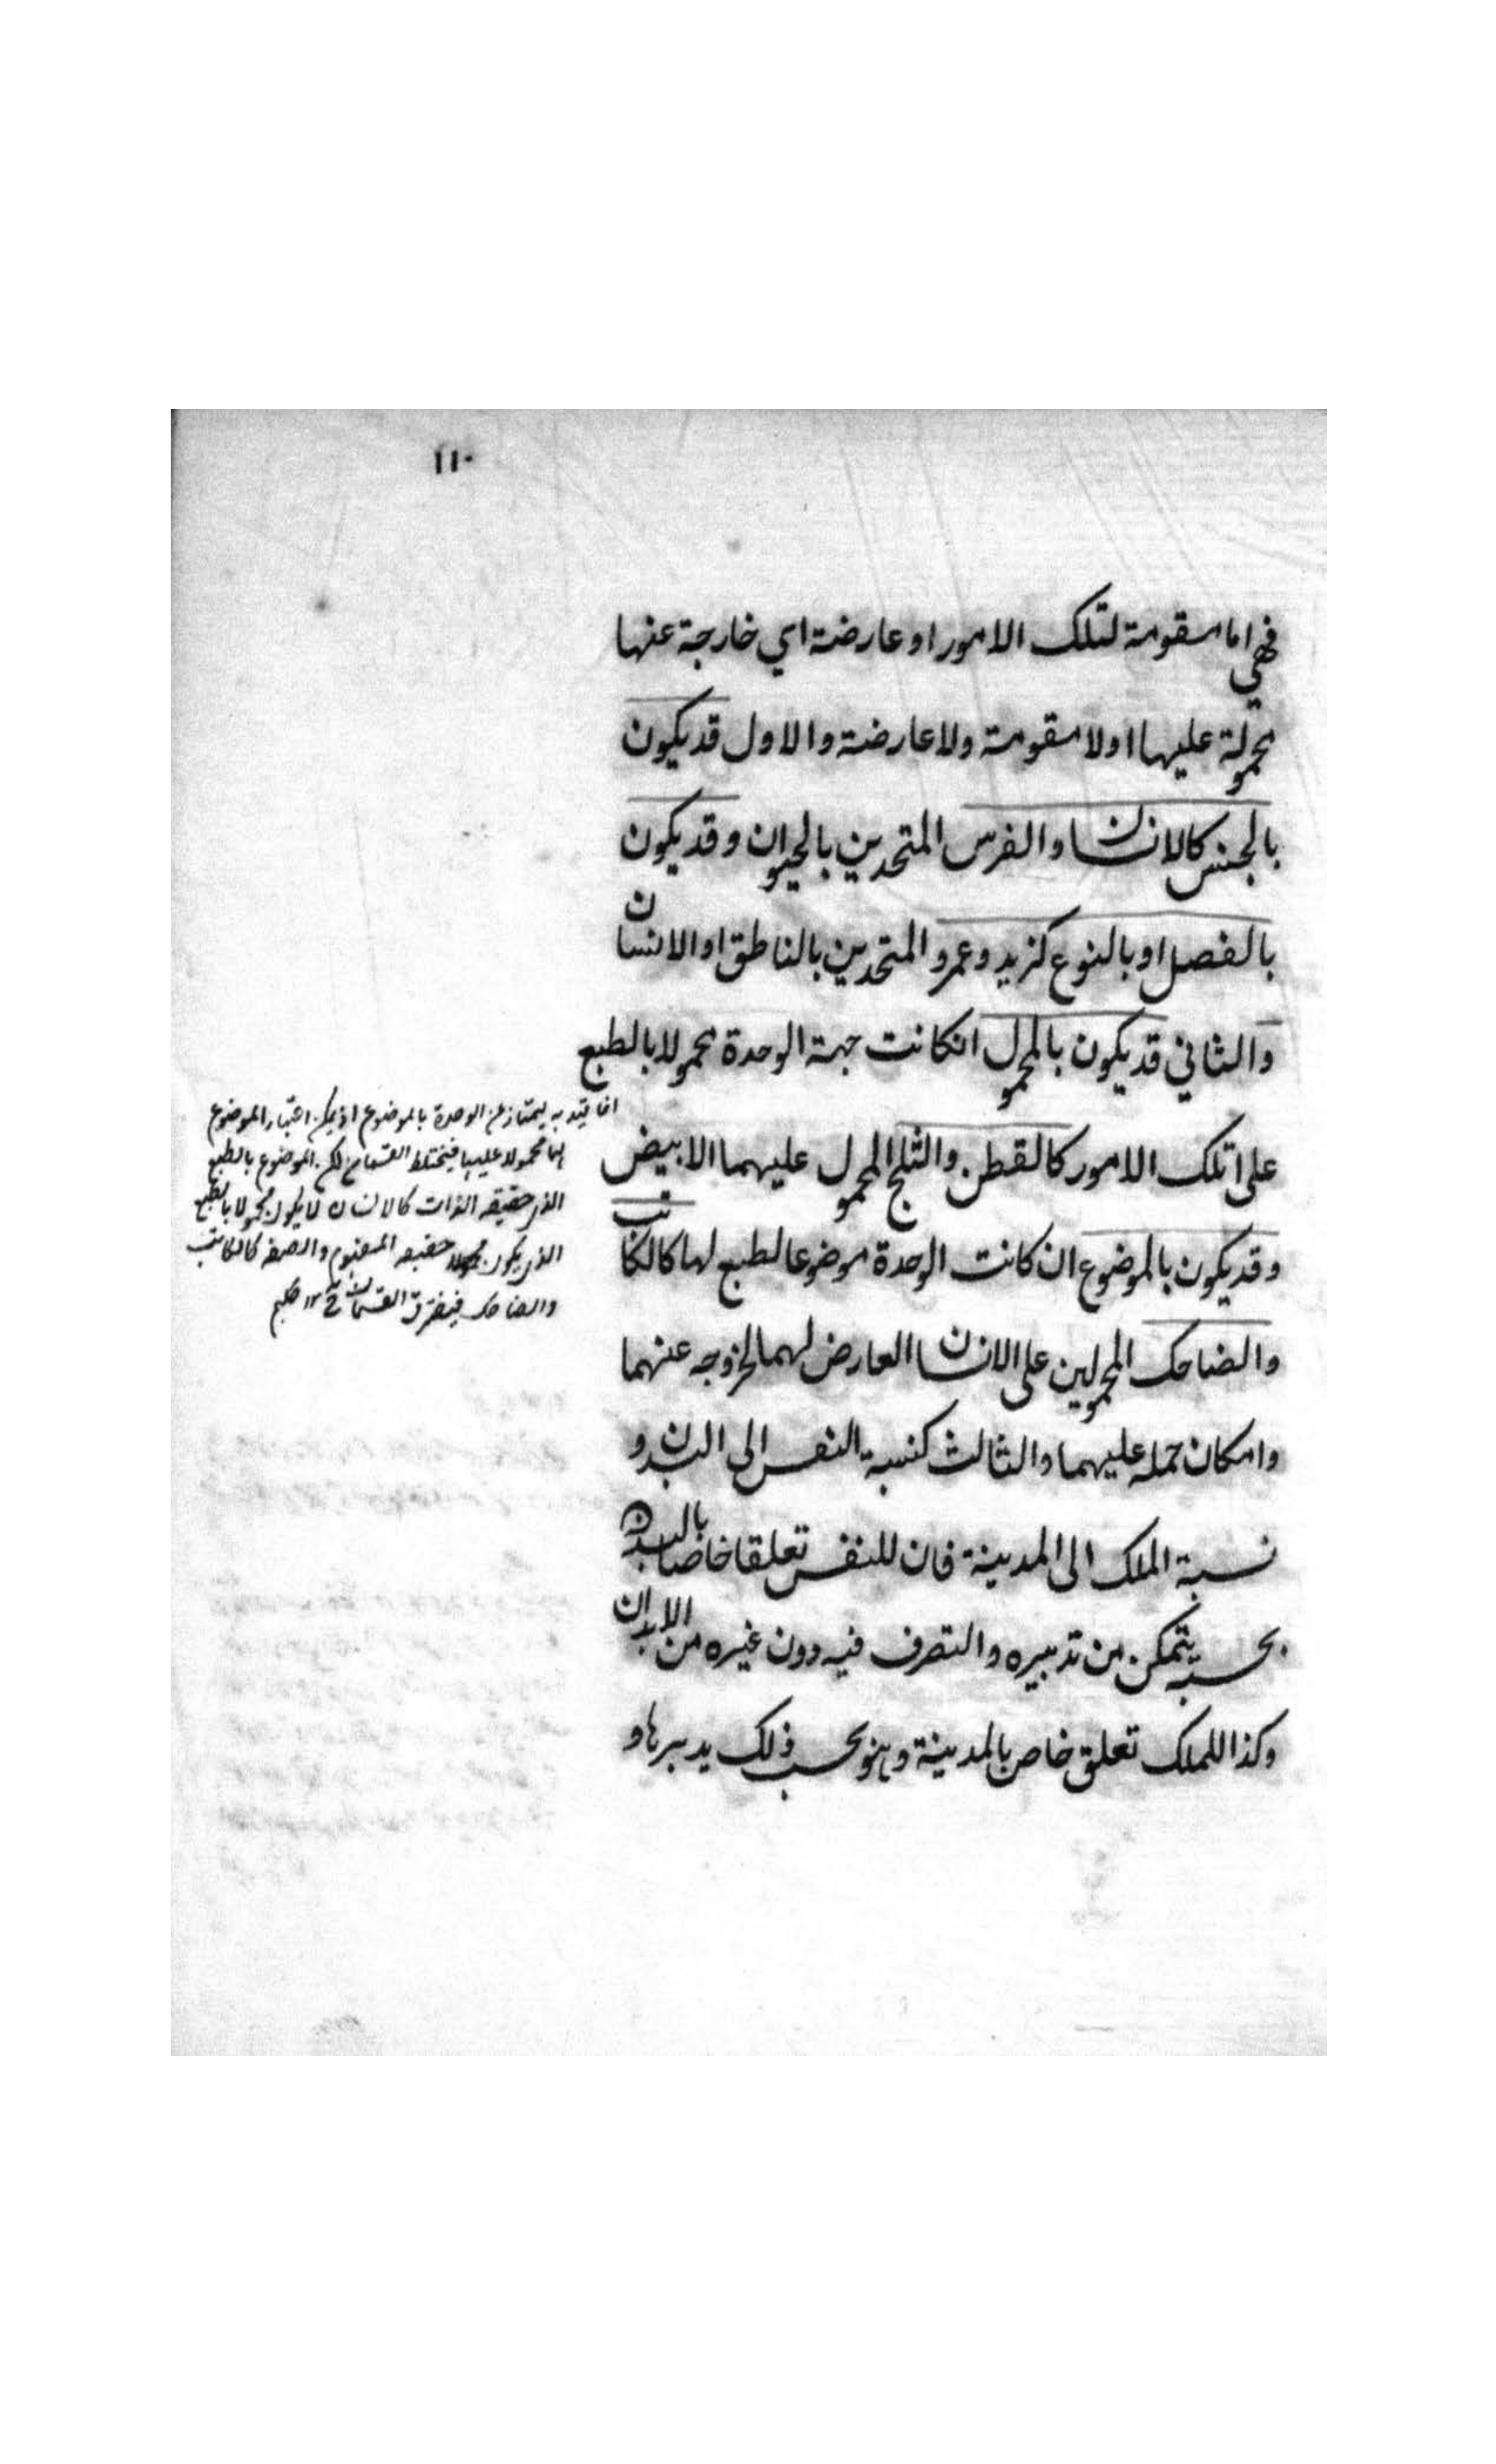 ١١٠
فهي اما مقومة لتلك الامور او عارضة اي خارجة عنها
محمولة عليها او لا مقومة ولا عارضة والاول قد يكون
بالجنس كالانسان والفرس المتحدين بالحيوان وقد يكون
بالفصل او بالنوع كزيد وعمرو المتحدين بالناطق او الانسان
والثاني قد يكون بالمحمول انكانت جهة الوحدة محمولا بالطبع
على تلك الامور كالقطن والثلج المحمول عليهما الابيض
وقد يكون بالموضوع ان كانت الوحدة موضوعا لطبع لها كالكاتب
والضاحك المحمولين على الانسان العارض لهما لخروجه عنهما
وامكان حمله عليهما والثالث كنسبة النفس الى البدن و
نسبة الملك الى المدينة فان للنفس تعلقا خاصا بالبدن
بحسبه يتمكن من تدبيره والتصرف فيه دون غيره من الابدان
وكذا للملك تعلق خاص بالمدينة وهو بحسب ذلك يدبرها و
انما قيد به ليمتاز عن الوحدة بالموضوع اذ يمكن اعتبار الموضوع
محمولا عليها فيختلط القسمان لكن الموضوع بالطبع
الذي حقيقة الذات كالانسان لا يكون محمولا بالطبع
الذي يكون حقيقة المفهوم والصفة كالكاتب
والضاحك فيفترق القسمان ١٢